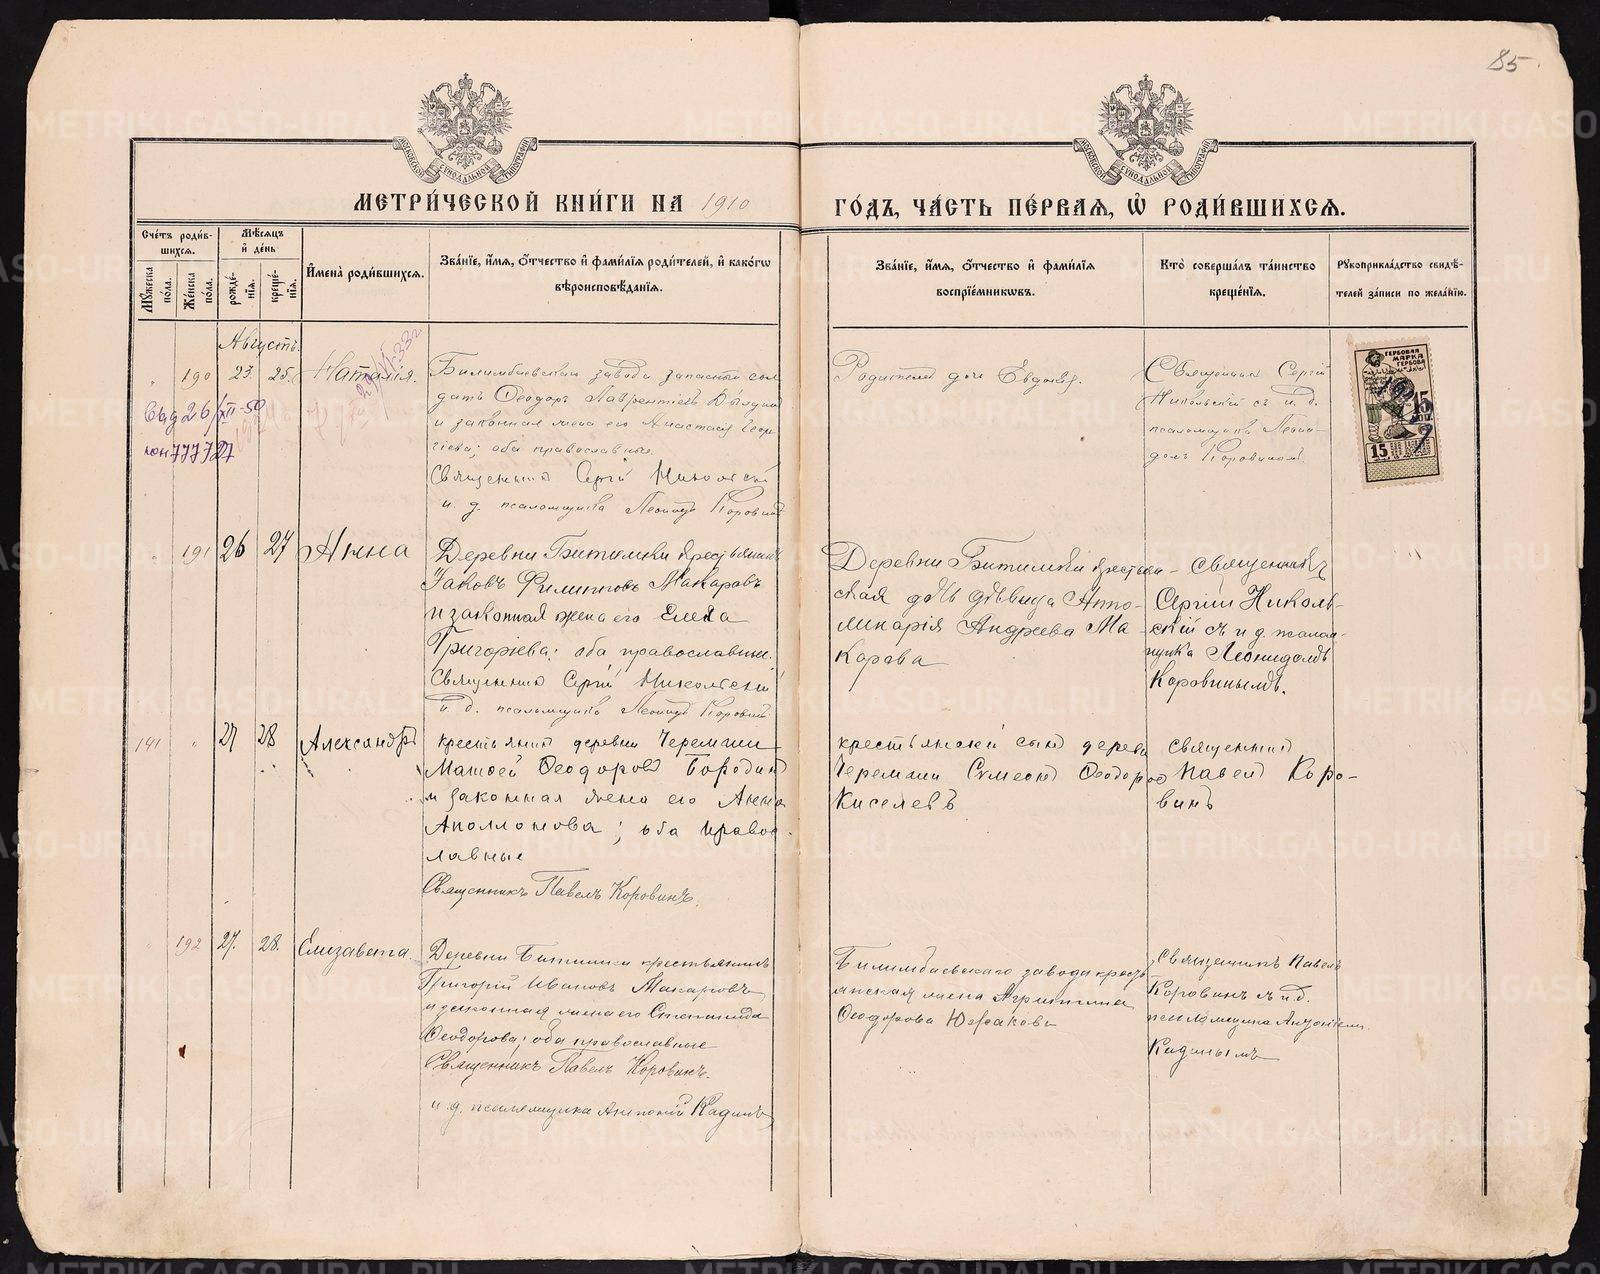 85.
МЕТРИ́ЧЕСКОЙ КНИ́ГИ НА 1910
ГО́ДЪ, ЧА́СТЬ ПЕ́РВАЯ, Ѡ РОДИ́ВШИХСЯ.
Сче́тъ роди́в-
шихся.
Мꙋ́жеска
пола.
Же́нска
пола.
Мѣ́сяцъ
и҆ де́нь
рожде́-
нїя.
креще́-
нїя.
И҆мена̀ роди́вшихся.
Зва́нїе, и҆́мя, ѻ҆́тчество и҆ фами́лїя роди́телей, и҆ како́гѡ
вѣроисповѣ́данїя.
Зва́нїе, и҆́мя, ѻ҆́тчество и҆ фами́лїя
воспрїе́мниковъ.
Кто̀ соверша́лъ та́инство
креще́нїя.
Рꙋкоприкла́дство свидѣ́-
телей за́писи по жела́нїю.
Августъ.
" 190 23. 25. Наталія.
Билимбаевскаго завода запасный сол
датъ Ѳеодоръ Лаврентіевъ
и законная жена его Анастасія Геор
гіева; оба православные.
Священникъ Сергій Никольскій
и. д. псаломщика Леонидъ Коровинъ
Родителей дочь Евдокія.
Священникъ Сергій
Никольскій съ и. д.
псаломщика Леони-
домъ Коровинымъ.
26/XII-50
777727
ГЕРБОВАЯ
МАРКА
15
" 191 26 27 Анна
Деревни Битимки крестьянинъ
Іаковъ Филипповъ Макаровъ
и законная жена его Елена
Григоріева; оба православные.
Священникъ Сергій Никольскій
и. д. псаломщика Леонидъ Коровинъ
Деревни Битимки крестьян-
ская дочь дѣвица Аппо-
линарія Андреева Ма-
карова
Священникъ
Сергій Николь-
скій съ и д. псалом-
щика Леонидомъ
Коровинымъ.
141 " 27 28 Александръ
крестьянинъ деревни Черемши
Матѳей Ѳеодоровъ Бородинъ
и законная жена его Анна
Аполлонова; оба право
славные
Священникъ Павелъ Коровинъ.
крестьянскій сынъ деревни
Черемши Сѵмеонъ Ѳеодоров
Киселевъ
священникъ
Павелъ Коро-
винъ
" 192 27. 28. Елизавета.
Деревни Битимки крестьянинъ
Григорій Ивановъ Макаровъ
и законная жена его Степанида
Ѳеодорова; оба православные
Священникъ Павелъ Коровинъ.
и. д. псаломщика Антоній Кадинъ
Билимбаевскаго завода кресть
янская жена Агриппина
Ѳеодорова Южакова
Священникъ Павелъ
Коровинъ съ и.д.
псаломщика Антоніемъ
Кадинымъ